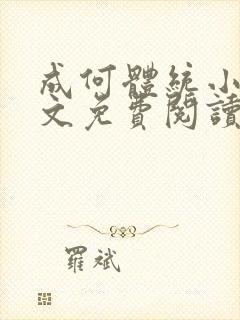 成何體統小
文免費閱讀
羅斌